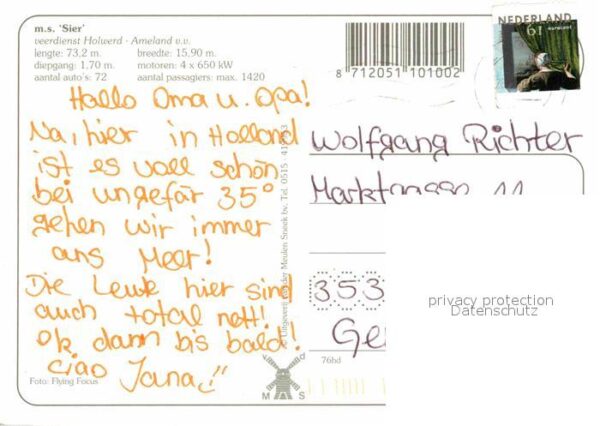 m.s. 'Sier'
veerdienst Holwerd - Ameland v.v.
lengte: 73,2 m. breedte: 15,90 m.
diepgang: 1.70 m. motoren: 4 x 650 kW
aantal auto's: 72 aantal passagiers: max. 1420
8 712051 101002
NEDERLAND
61 eurocent
Hallo Oma u. Opa!
Na, hier in Holland
ist es voll schön
bei ungefär 35°
gehen wir immer
ans Meer!
Die Leute hier sind
auch total nett!
Ok dann bis bald!
Ciao Jana
Foto: Flying Focus
Uitgeverij van der Meulen Sneek bv. Tel. 0515
Wolfgang Richter
353
76hd
M S
privacy protection
Datenschutz